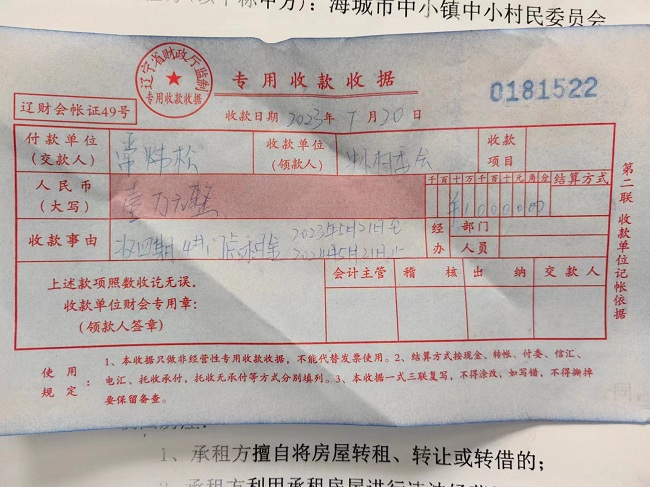 甲方）：海城市中小镇中小村民委员会
辽宁省财政厅监制
专用收款收据
专用收款收据
0181522
辽财会帐证49号
收款日期 2023年 月20日
付款单位
(交款人)
收款单位
(领款人)
村委会
收款
项目
人民币
(大写)
壹万元整
千百十万千百十元角分
结算方式
¥1000000
收款事由
2023年5月21日至
2024年5月21日止
经 部门
办 人员
上述款项照数收讫无误。
收款单位财会专用章：
(领款人签章)
会计主管
稽 核
出 纳
交款人
第二联 收款单位记帐依据
使用规定：
1、本收据只做非经营性专用收款收据，不能代替发票使用。2、结算方式按现金、转帐、付委、信汇、
电汇、托收承付，托收无承付等方式分别填列。3、本收据一式三联复写，不得涂改，如写错，不得撕掉
要保留备查。
1、承租方擅自将房屋转租、转让或转借的；